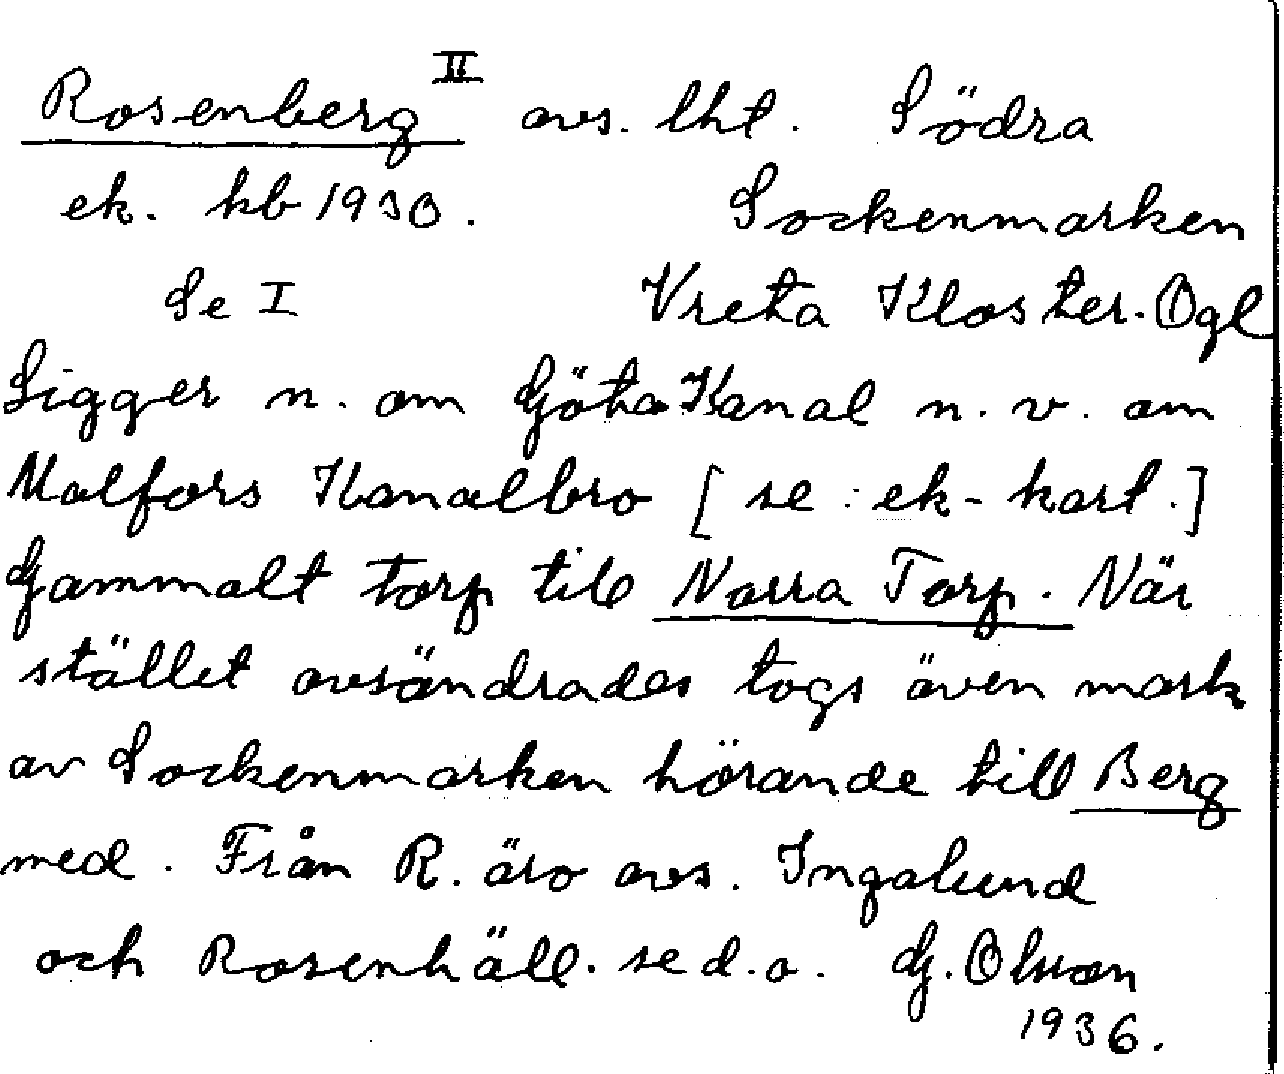 Rosenberg II avs. lht. Södra
ek. kb 1930. Sockenmarken
Se I Vreta Kloster. Ögl
Ligger n. om Göta Kanal n. v. om
Malfors Kanalbro [se : ek-kart.]
Gammalt torp till Norra Torp. När
stället avsöndrades togs även mark
av Sockenmarken hörande till Berg
med. Från R. äro avs. Ingalund
och Rosenhäll. se d. o. G. Olsson
1936.